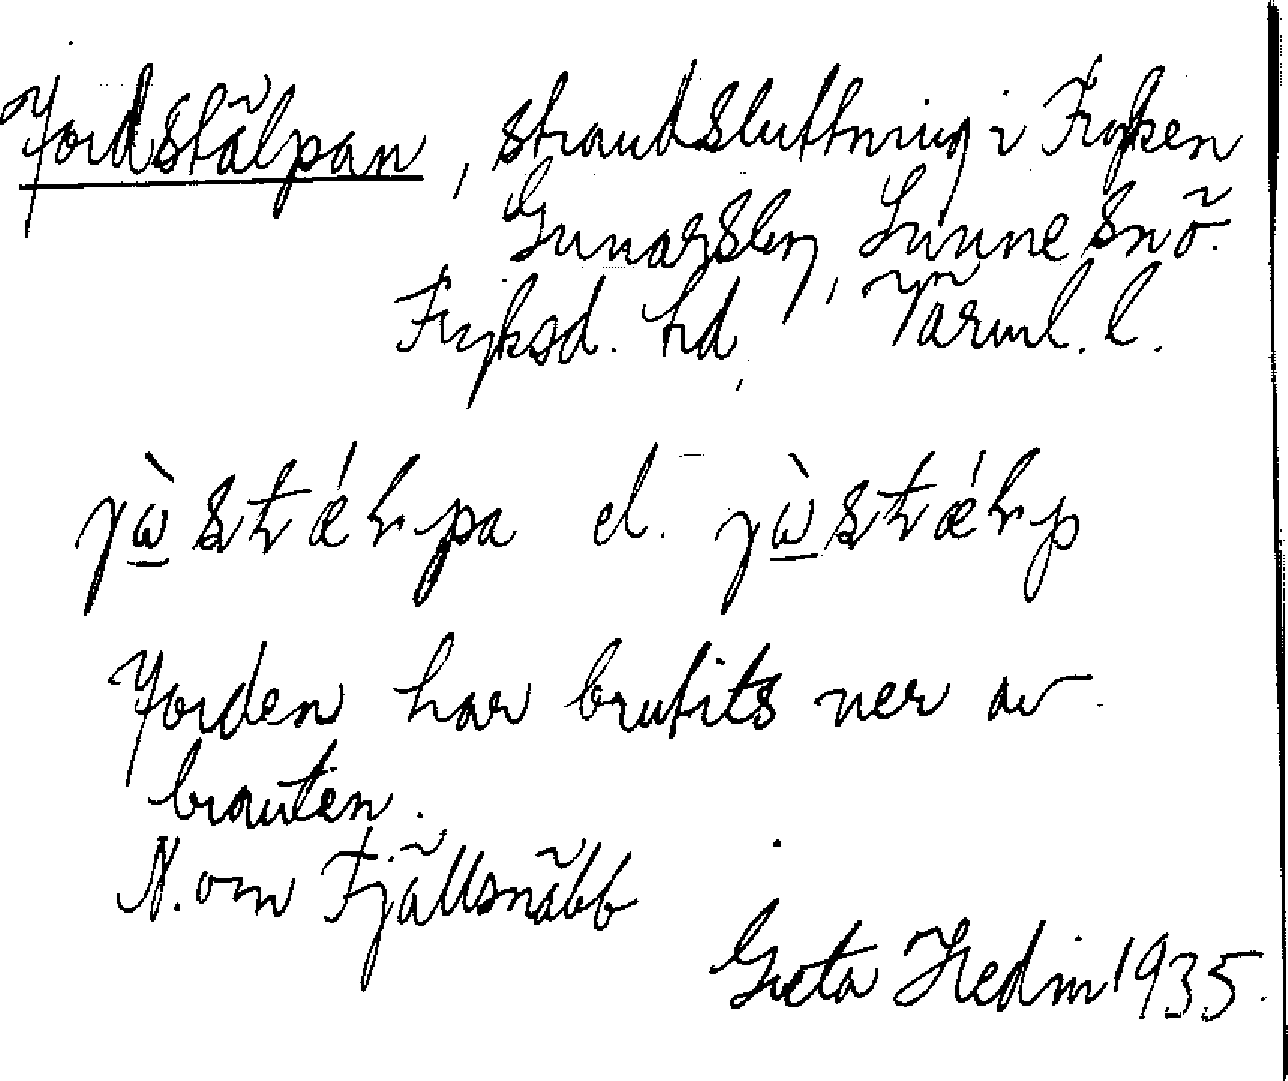 Jordstälpan, strandsluttning i Fryken
Gunnarsby, Sunne snö.
Fryksd. hd, Värml. l.
jὼstǽlpa el. jὼstǽlp
Jorden har brutits ner av
branten.
N. om Fjällsnäbb
Greta Hedin 1935.